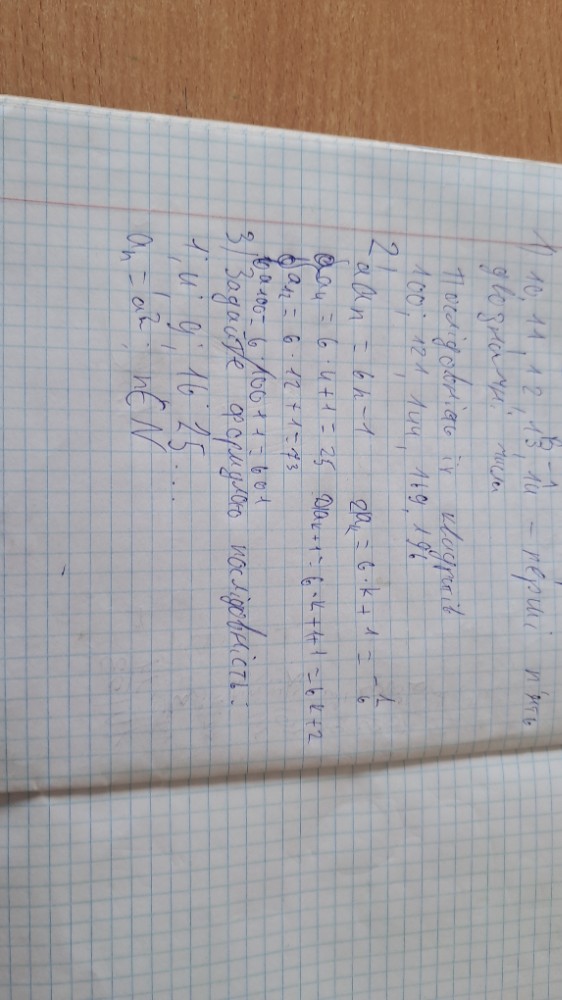 1) 10, 11, 12, 13, 14 – перші п'ять
двозначні числа
Послідовність їх квадратів
100, 121, 144, 169, 196
2) aₙ = 6n-1 a_k = 6·k+1 =
a₄ = 6·4+1=25 a_k+1 = 6·k+1+1=6k+2
a₁₂ = 6·12+1=73
a₁₀₀ = 6·100+1=601
3) Задайте формулою послідовність:
1; 4; 9; 16; 25...
aₙ = a²; n∈N